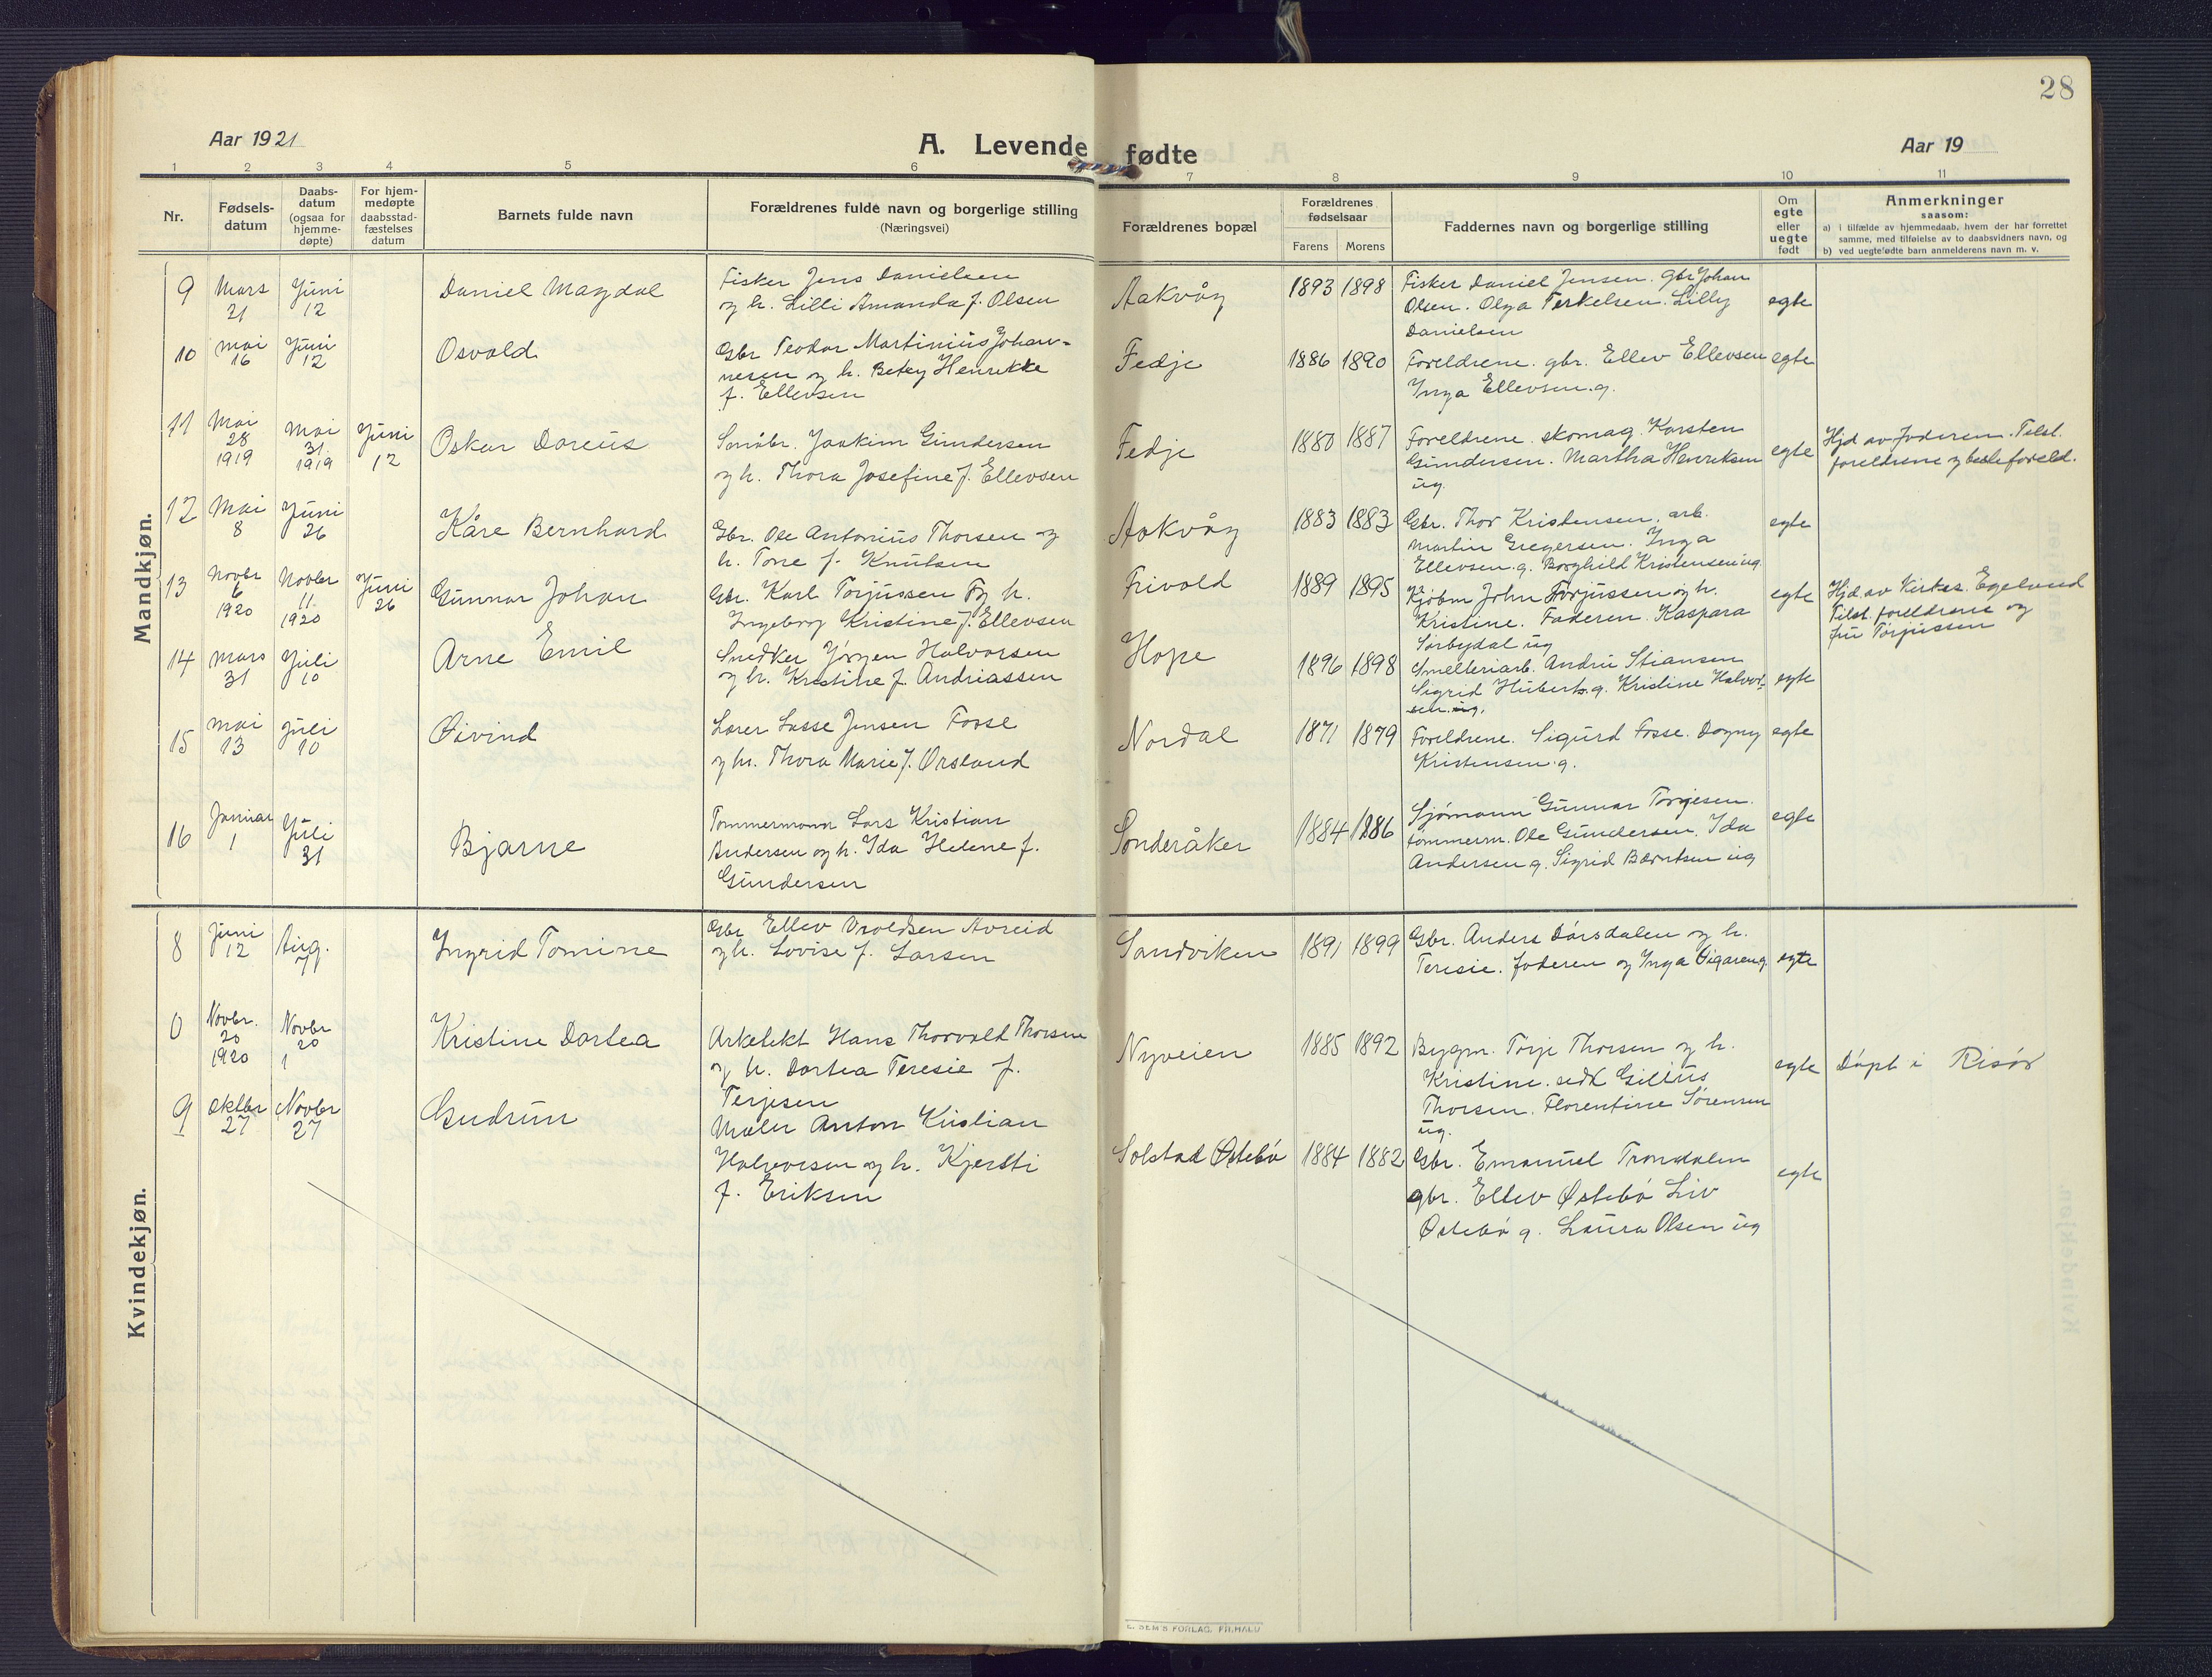 28
Aar 1921
A. Levende fødte
Aar 19
1 2 3 4 5 6 7 8 9 10 11
Nr.
Fødsels-
datum
Daabs-
datum
(ogsaa for
hjemme-
døpte)
For hjem-
medøpte
daabsstad-
fæstelses
datum
Barnets fulde navn
Forældrenes fulde navn og borgerlige stilling
(Næringsvei)
Forældrenes bopæl
Forældrenes
fødselsaar
Farens Morens
Faddernes navn og borgerlige stilling
Om
egte
eller
uegte
født
Anmerkninger
saasom:
a) i tilfælde av hjemmedaab, hvem der har forrettet
samme, med tilføielse av to daabsvidners navn, og
b) ved uegtefødte barn anmelderens navn m. v.
Mandkjøn.
9
Mars
21
Juni
12
Daniel Magdal
Fisker Jens Danielsen
og h. Lilli Amanda f. Olsen
Aakvåg
1893 1898
Fisker Daniel Jensen. gbr Johan
Olsen. Olga Terkelsen. Lilly
Danielsen
egte
10
Mai
16
Juni
12
Osvald
Gbr Teodor Martinius Johan-
nesen og h. Betzy Henrikke
f. Ellevsen
Fedje
1886 1890
Foreldrene. gbr. Ellev Ellevsen
Inga Ellevsen. g.
egte
11
Mai
28
1919
Mai
31
1919
Juni
12
Oskar Dareus
Småbr. Joakim Gundersen
og h. Thora Josefine f. Ellevsen
Fedje
1880 1887
Foreldrene. skomag. Karsten
Gundersen. Martha Henriksen
ug.
egte
Hjd av Faderen. Tilst.
foreldrene og besteforeld.
12
Mai
8
Juni
26
Kåre Bernhard
Gbr. Ole Antonius Thorsen og
h. Tone f. Knutsen
Aakvåg
1883 1883
Gbr. Thor Kristensen. arb.
Martin Gregersen. Inga
Ellevsen. g. Borghild Kristensen ug.
egte
13
Novbr
6
1920
Novbr
11
1920
Juni
26
Gunnar Johan
Gbr. Karl Torjussen og h.
Ingeborg Kristine f. Ellevsen
Frivold
1889 1895
Kjøbm John Torjussen og h.
Kristine. Faderen. Kaspara
Sørbydal ug
egte
Hjd. av Kirkes. Egeland
Tilst. foreldrene og
fru Torjussen
14
Mars
31
Juli
10
Arne Emil
Snedker Jörgen Halvorsen
og h. Kristine f. Andriassen
Hope
1896 1898
Smelteriarb. Andru Stiansen
Sigrid Huberts. g. Kristine Halvor-
sen. ug.
egte
15
Mai
13
Juli
10
Øivind
Lærer Lasse Jensen Fosse
og h. Thora Marie f. Ørsland
Nordal
1871 1879
Foreldrene. Sigurd Fosse. Dagny
Kristensen. g.
egte
16
Januar
1
Juli
31
Bjarne
Tømmermann Lars Kristian
Andersen og h. Ida Helene f.
Gundersen
Sønderåker
1884 1886
Sjømann Gunnar Torjesen.
tømmerm. Ole Gundersen. Ida
Andersen g. Sigrid Bærntsen ug
egte
Kvindekjøn.
8
Juni
12
Aug.
7
Ingrid Tomine
Gbr Ellev Vroldsen Avreid
og h. Lovise f. Larsen
Sandviken
1891 1899
Gbr. Anders Dørsdalen og h.
Teresie. faderen og Inga
egte
0
Novbr.
20
1920
Novbr
20
1
Kristine Dortea
Arkitekt Hans Thorvald Thorsen
og h. Dortea Teresie f.
Terjesen
Nyveien
1885 1892
Bygm. Torje Thorsen og h.
Kristine.
Thorsen. Florentine Sørensen
ug.
egte
Døpt i Risør
9
Oktbr
27
Novbr
27
Gudrun
Maler Anton Kristian
Halvorsen og h. Kjersti
f. Eriksen
Solstad Østebø
1884 1882
Gbr. Emanuel Trondalen
gbr. Ellev Østebø Liv
Østebø g. Laura Olsen ug
egte
E. SEM'S FORLAG, FR.HALD